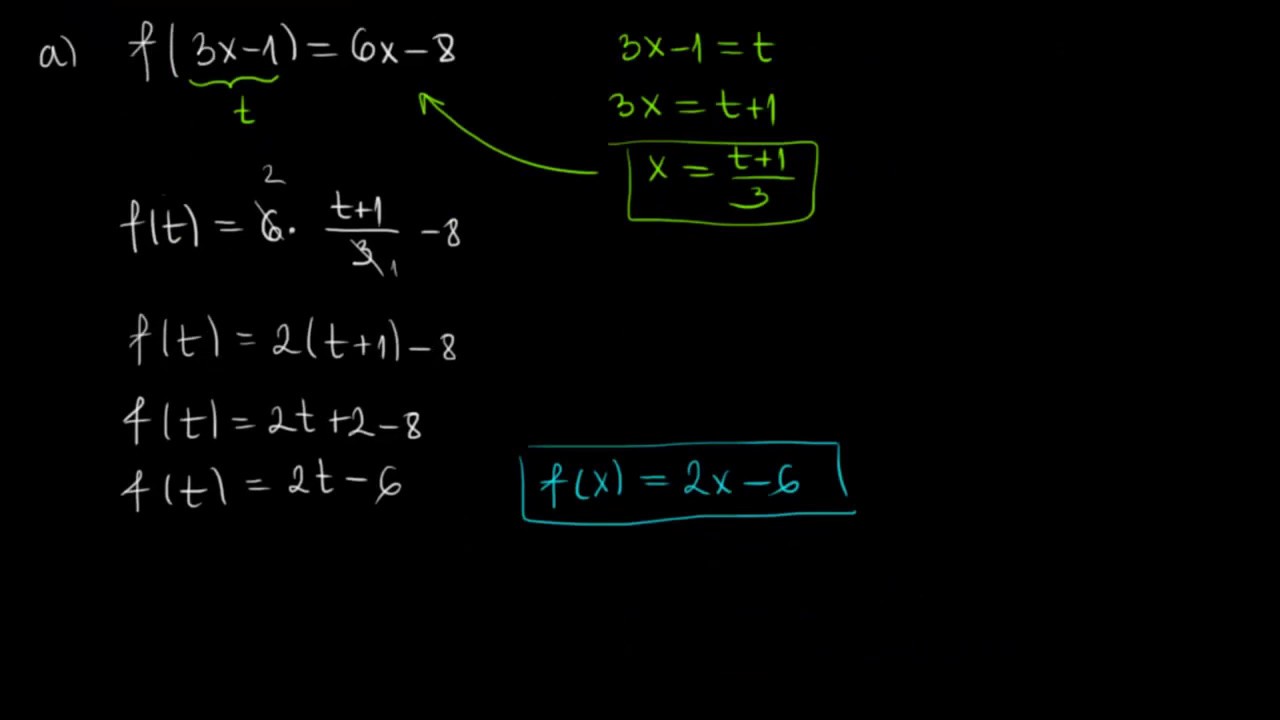 a) f(3x-1) = 6x-8
t
3x-1 = t
3x = t+1
x = t+1/3
f(t) = 6 2 · t+1/3 1 -8
f(t) = 2(t+1)-8
f(t) = 2t+2-8
f(t) = 2t-6
f(x) = 2x-6